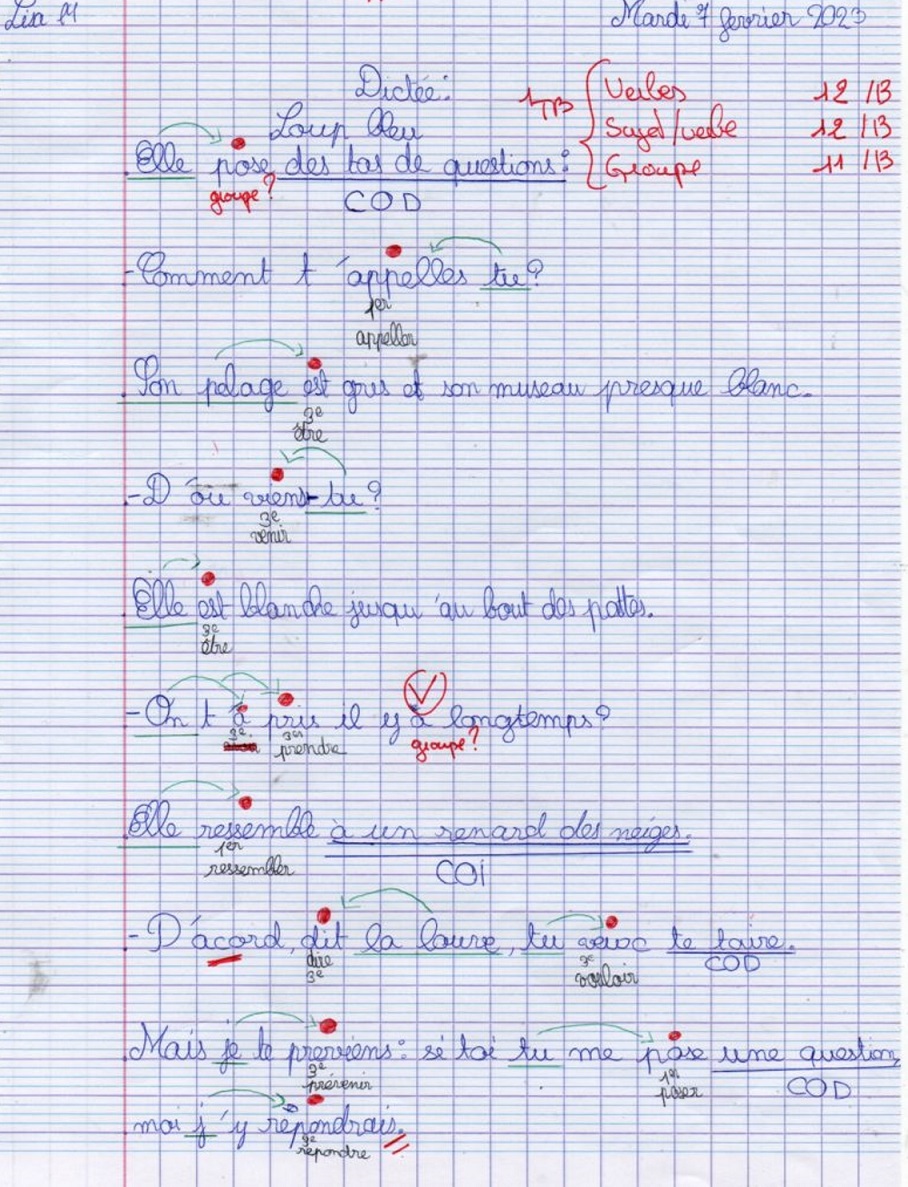 Lia M Mardi 7 février 2023
Dictée:
Loup bleu
TB { Verbes 12 /13
Sujet/verbe 12 /13
Groupe 11 /13
Elle pose des tas de questions:
groupe? COD
-Comment t'appelles tu?
1er
appeller
Son pelage est gris et son museau presque blanc.
3e
être
-D'où viens-tu?
3e
venir
Elle est blanche jusqu'au bout des pattes.
3e
être
-On t a pris il y a longtemps?
3e 3e groupe?
prendre
Elle ressemble à un renard des neiges.
1er
ressembler COi
-D'acord, dit la louve, tu te taire.
dire 3e COD
3e vouloir
Mais je te previens: si toi tu me pose une question,
3e 1er COD
prévenir poser
moi j'y répondrais.
3e
répondre